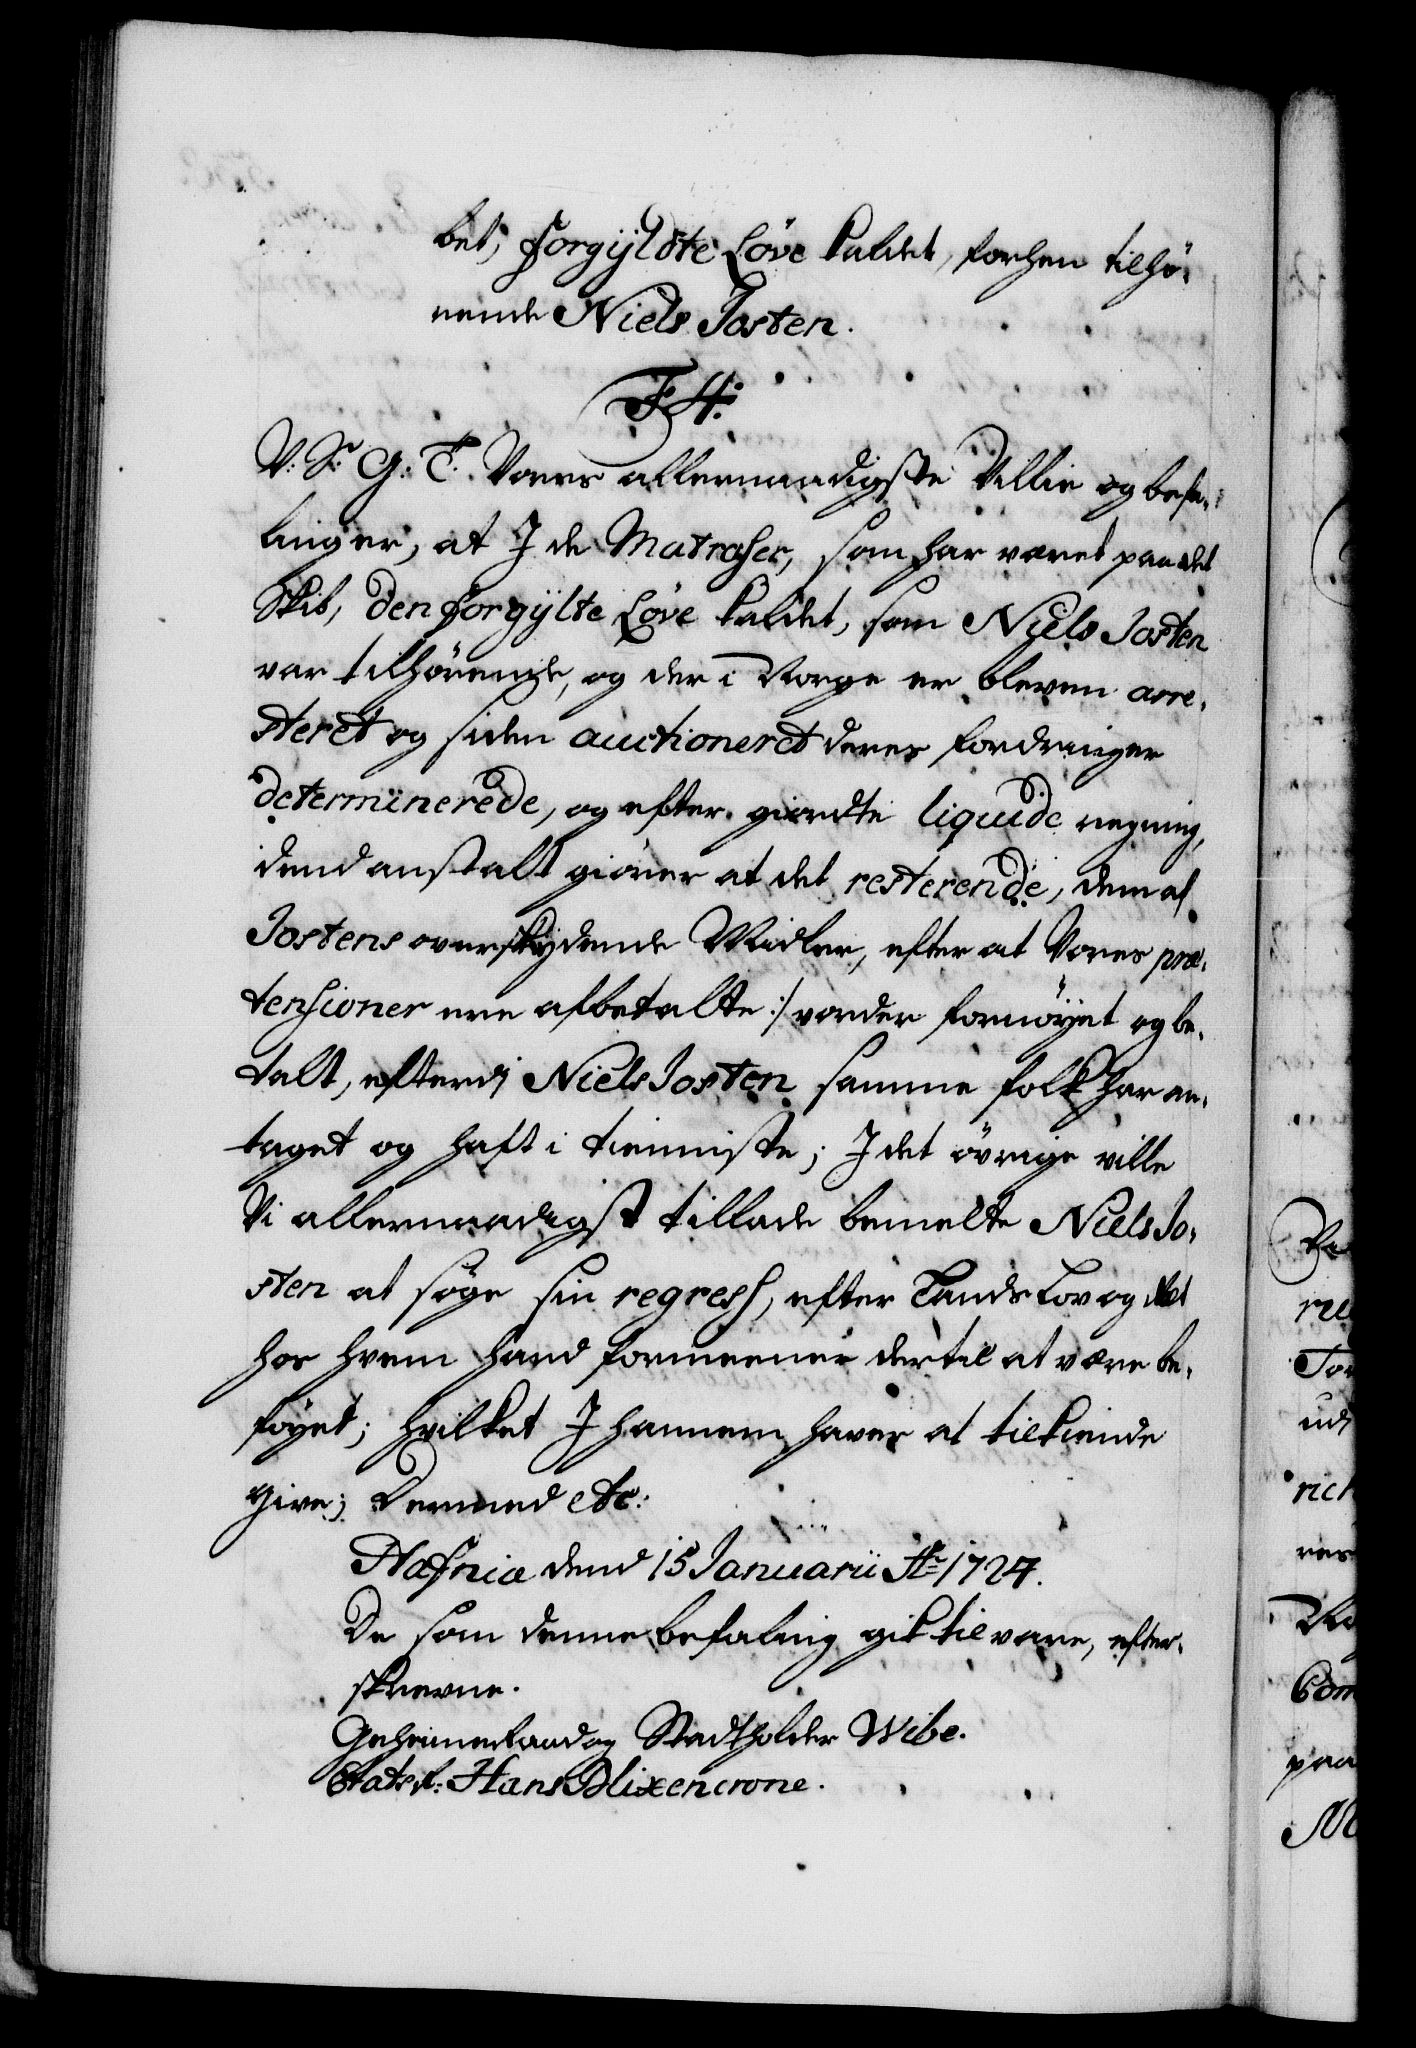 bet, forgyldte Løve kaldet, forhen tilhø-
rende Niels Josten.
F 4:
V: S: G: T. Vores allernaadigste Villie og befa-
linger, at I de Matroser, som har været paa det
Skib, den forgylte Løve kaldet, som Niels Josten
var tilhørende, og der i Norge er bleven arre-
steret og siden auctioneret deres fordringer
determinerede, og efter giordte liquide regning,
dend anstalt giører at det resterende, dem af
Jostens overskydende Midler, efter at Vores præ-
tensioner ere afbetalte :/ vorder fornøyet og be-
talt, efterdj Niels Josten samme folk har an-
taget og haft i tienniste; I det øvrige ville
Vi allernaadigst tillade bemelte Niels Jo-
sten at søge sin regress, efter Lands Lov og Ret
hos hvem hand formeener dertil at være be-
føyet; hvilket I hannem haver at tilkiende
give; Dermed etc:
Hafniæ dend 15 Januarii Ao 1724.
De som denne befaling gik til vare, efter-
skrevne.
Geheimeraad og Stadtholder Wibe.
Etats R: Hans Blixencrone.